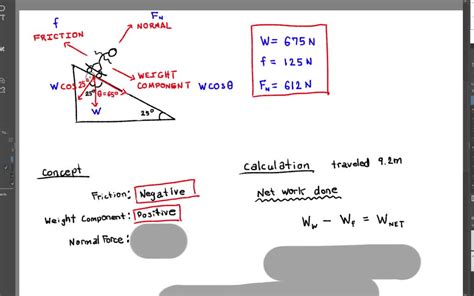 f
FRICTION
F_N
NORMAL
WEIGHT
COMPONENT W cos θ
W cos 25°
25°
θ = 65°
W
25°
W = 675 N
f = 125 N
F_N = 612 N
Concept
Friction: Negative
Weight Component: Positive
Normal Force:
Calculation traveled 9.2m
Net work done
W_W - W_f = W_NET